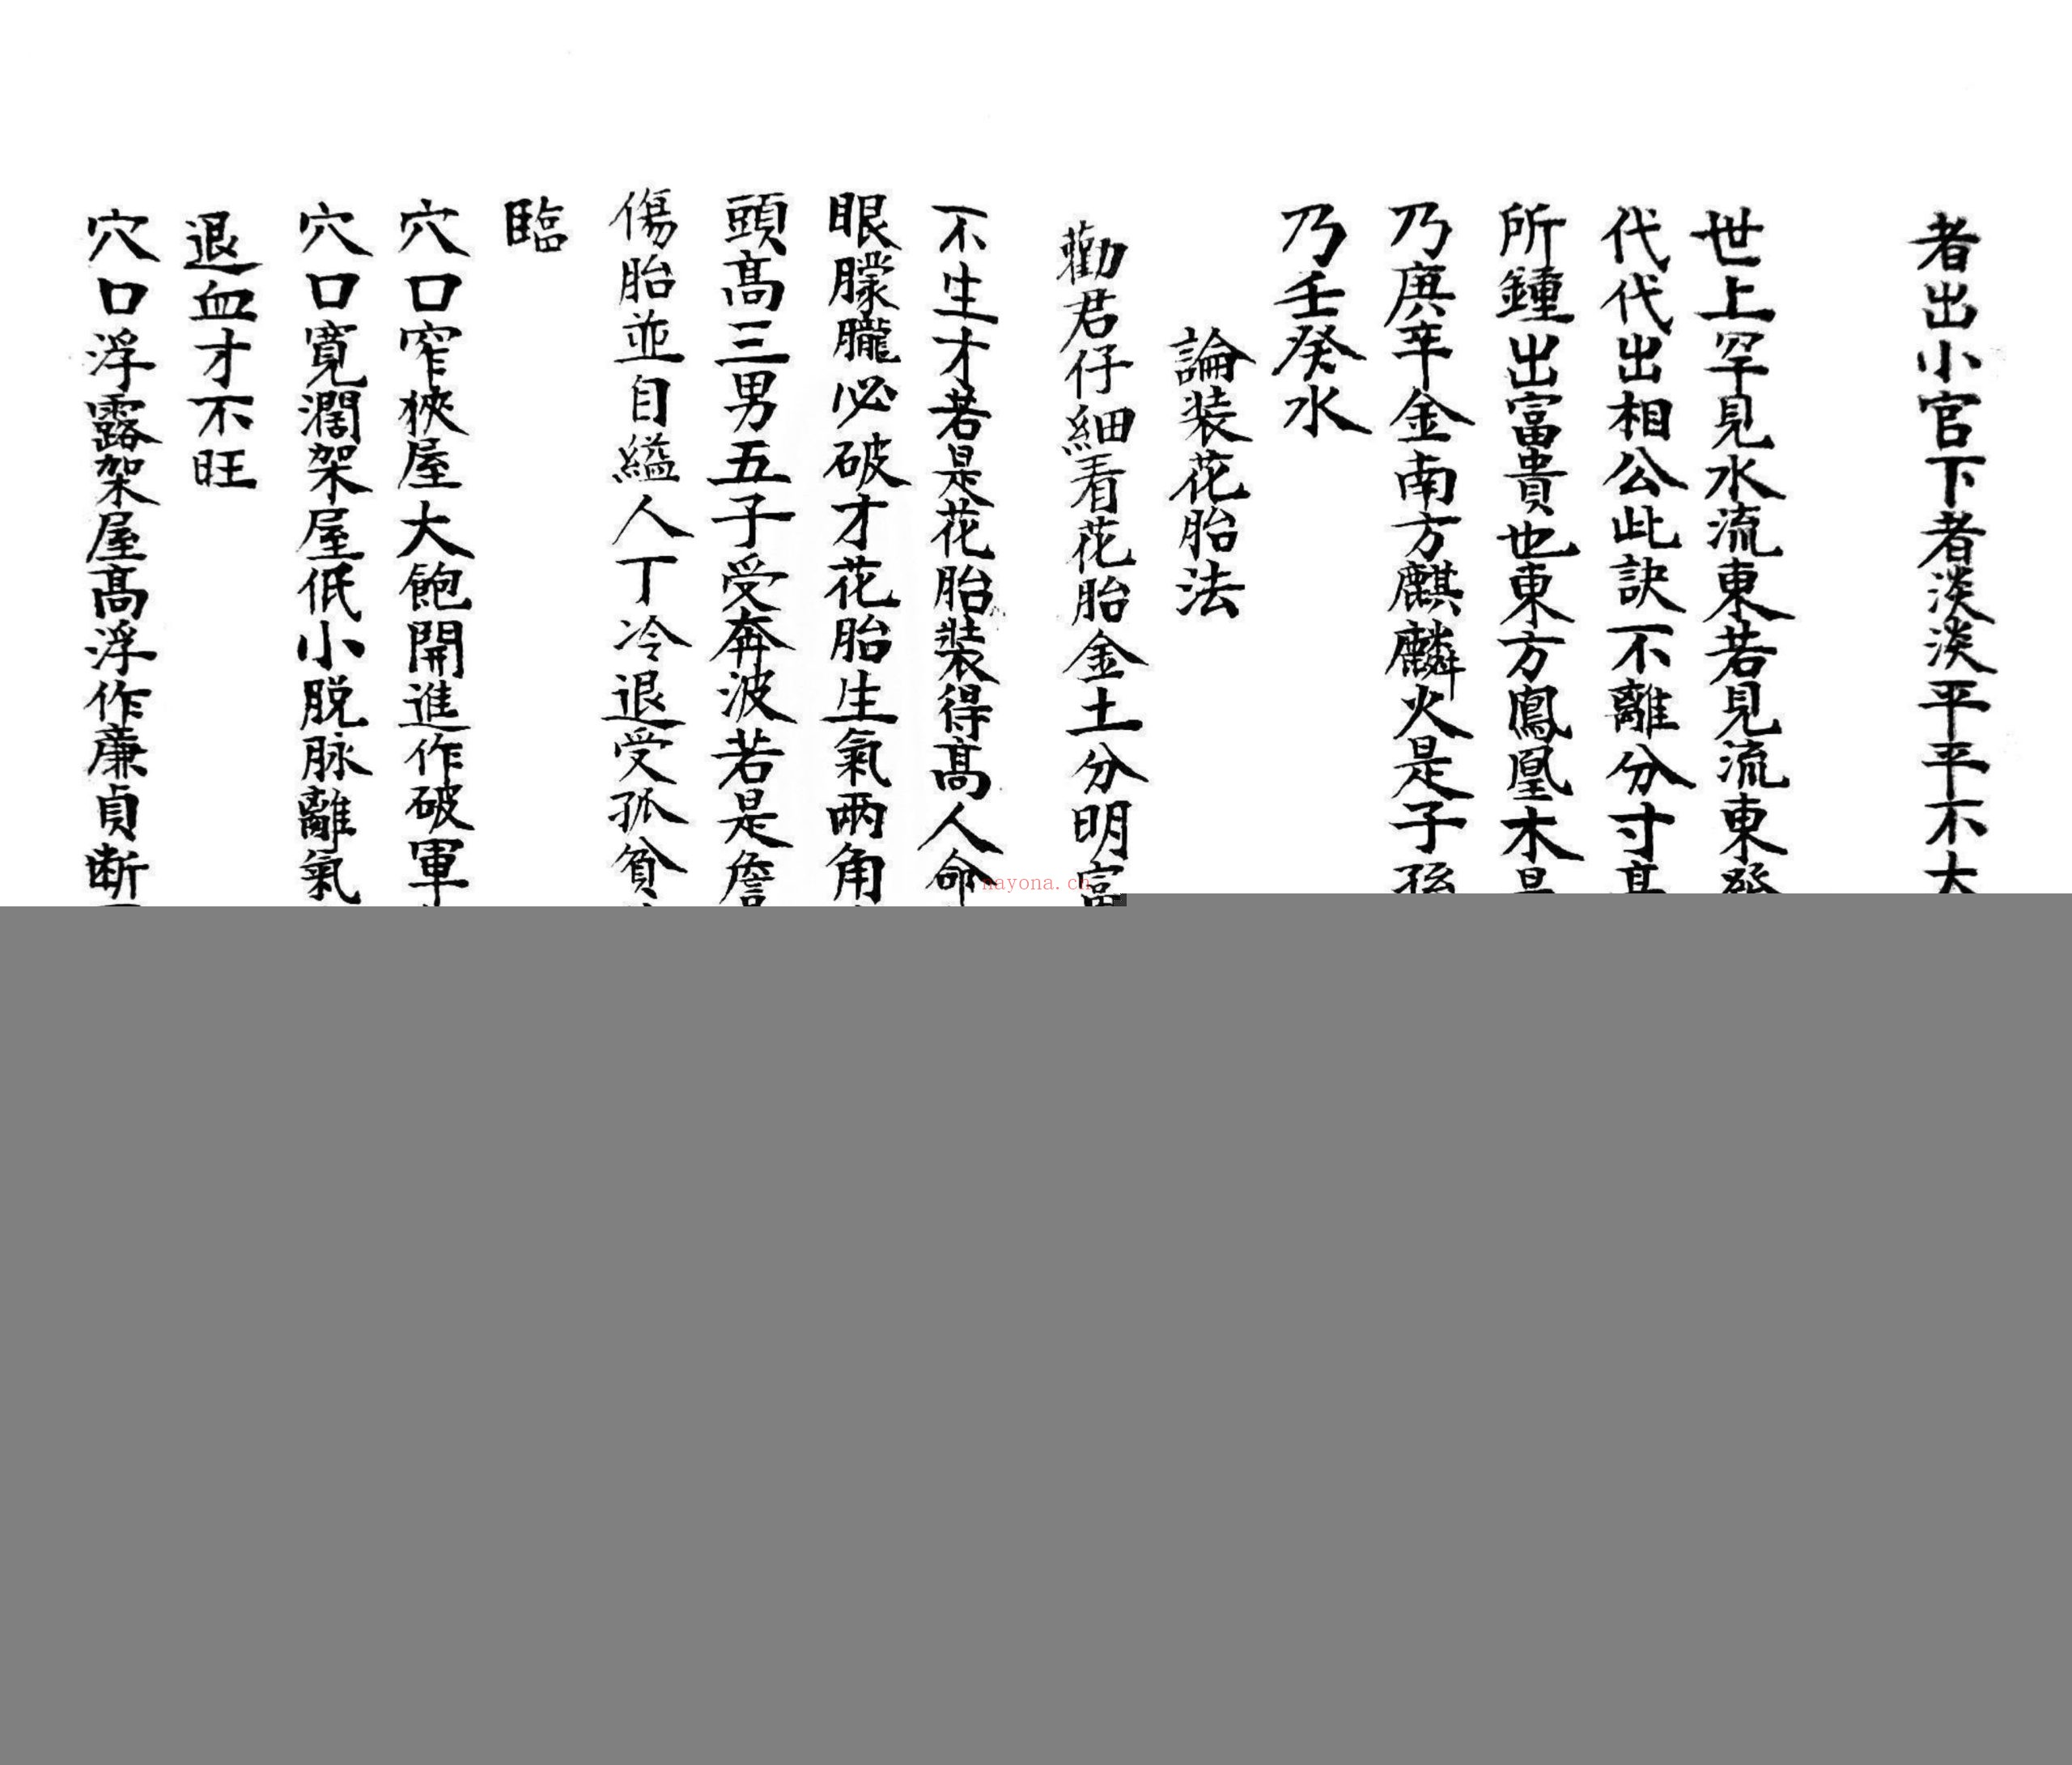 者出小官下者淡淡平平不大
世上罕見水流東若見流東發
代代出相公此訣不離分寸
所鍾出富貴也東方鳳凰木
乃庚辛金南方麒麟火是子孫
乃壬癸水
論装花胎法
勸君仔細看花胎金土分明富
不生才若是花胎裝得高人命
眼朦朧必破才花胎生氣两角
頭高三男五子受奔波若是
傷胎並自縊人丁冷退受孤貧
臨
穴口窄狹屋大飽開進作破軍
穴口寬濶架屋低小脱脉離氣
退血才不旺
穴口浮露架屋高浮作亷貞断
nayona.cn